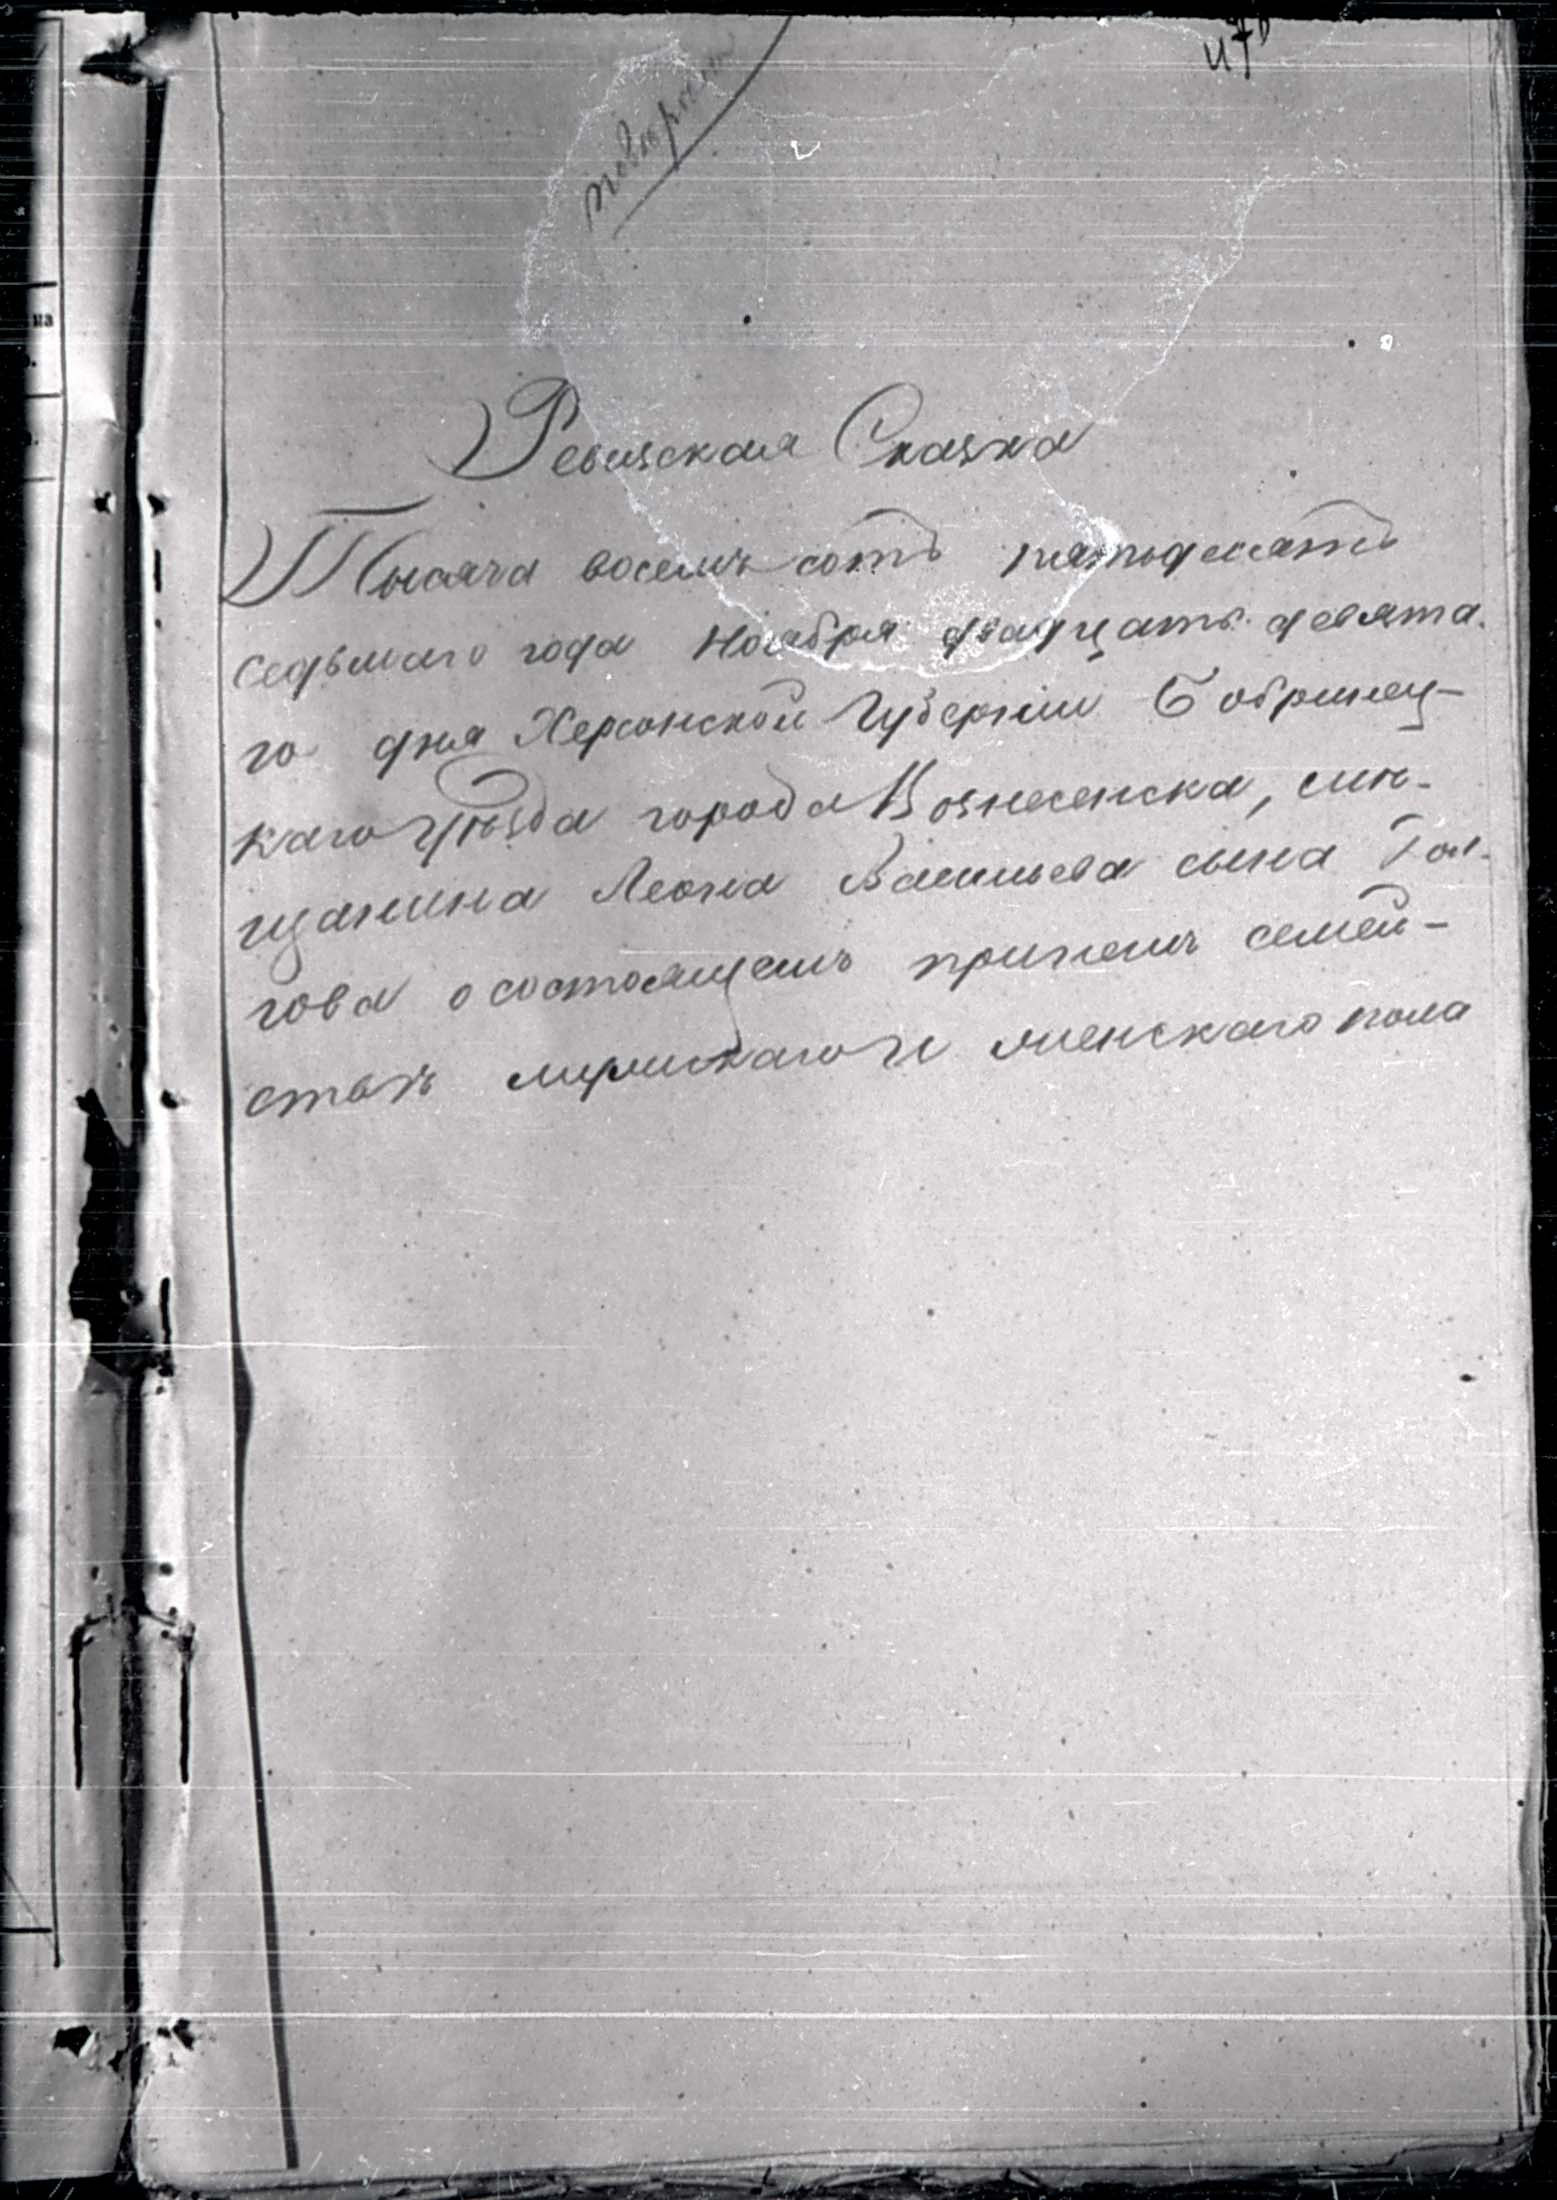 47
Ревизская Сказка
Тысяча восемь сотъ пятьдесятъ
седьмаго года Ноября двадцать девята.
го дня Херсонской Губерніи Бобринец-
каго Уѣзда города Вознесенска, мѣ-
щанина Леона Васильева сына Гол-
гова о состоящемъ при немъ семей-
ствѣ мужескаго и женскаго пола
на